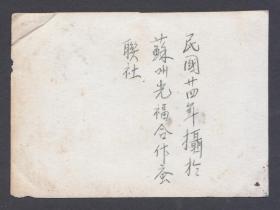 民國廿四年攝於
蘇州光福合作蚕
聯社